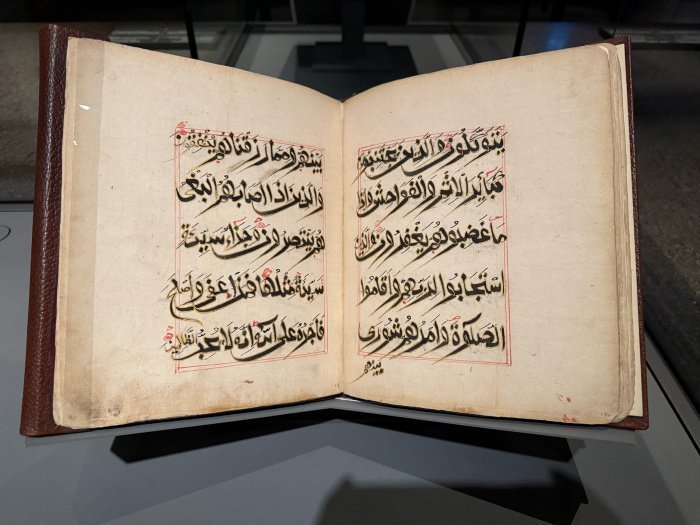 يتوكلون والذين يجتنبون
كبائر الاثم والفواحش واذا
ما غضبوا هم يغفرون والذين
استجابوا لربهم واقاموا
الصلوة وامرهم شورى
بينهم
بينهم ومما رزقناهم ينفقون
والذين اذا اصابهم البغي
هم ينتصرون وجزاء سيئة
سيئة مثلها فمن عفى واصلح
فاجره على الله انه لا يحب الظالمين